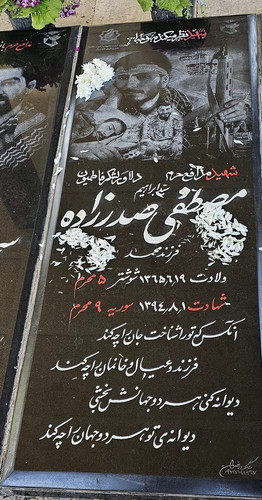 شهید مدافع حرم
سید ابراهیم
مصطفی صدرزاده
فرزند محمد
ولادت ۱۳۶۵،۶،۱۹ شوشتر ۵ محرم
شهادت ۱۳۹۴،۸،۱ سوریه ۹ محرم
آنکس که تو را شناخت جان را چه کند
فرزند و عیال و خانمان را چه کند
دیوانه کنی هر دو جهانش بخشی
دیوانه‌ی تو هر دو جهان را چه کند